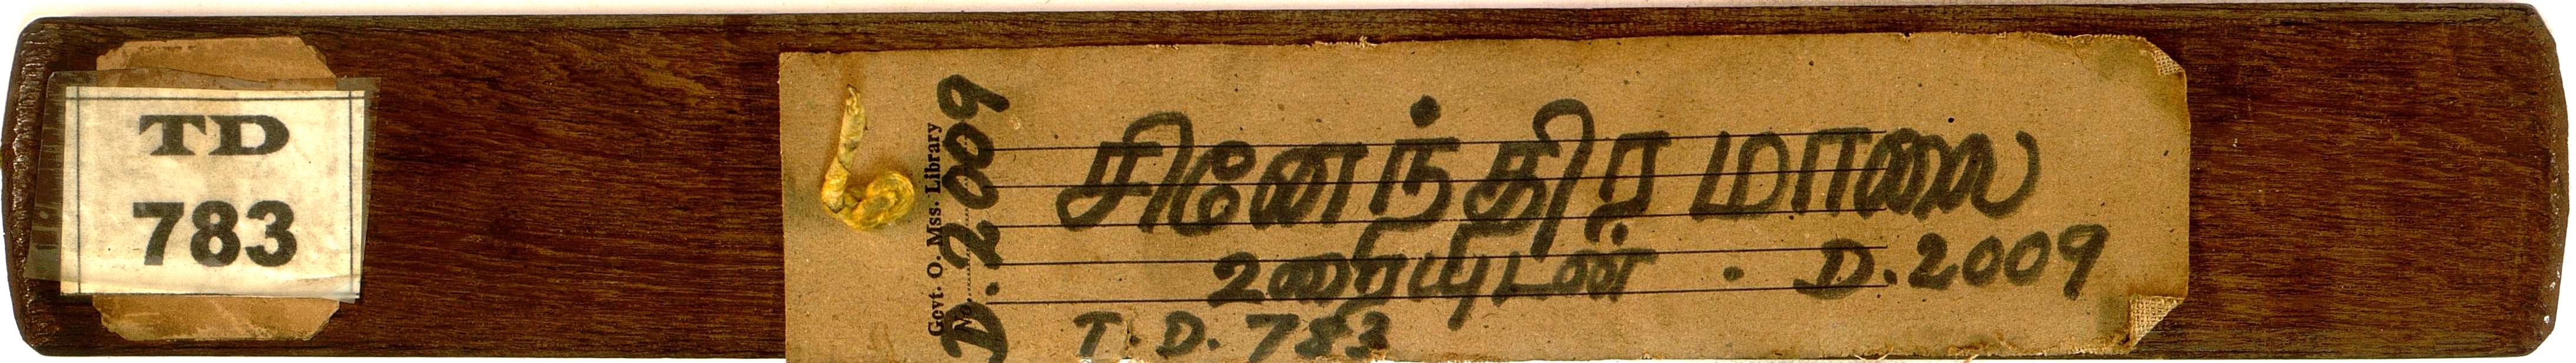 TD
783
Govt. O. Mss. Library
No. D. 2009
சினேந்திர மாலை
உரையுடன் . D. 2009
T. D. 783